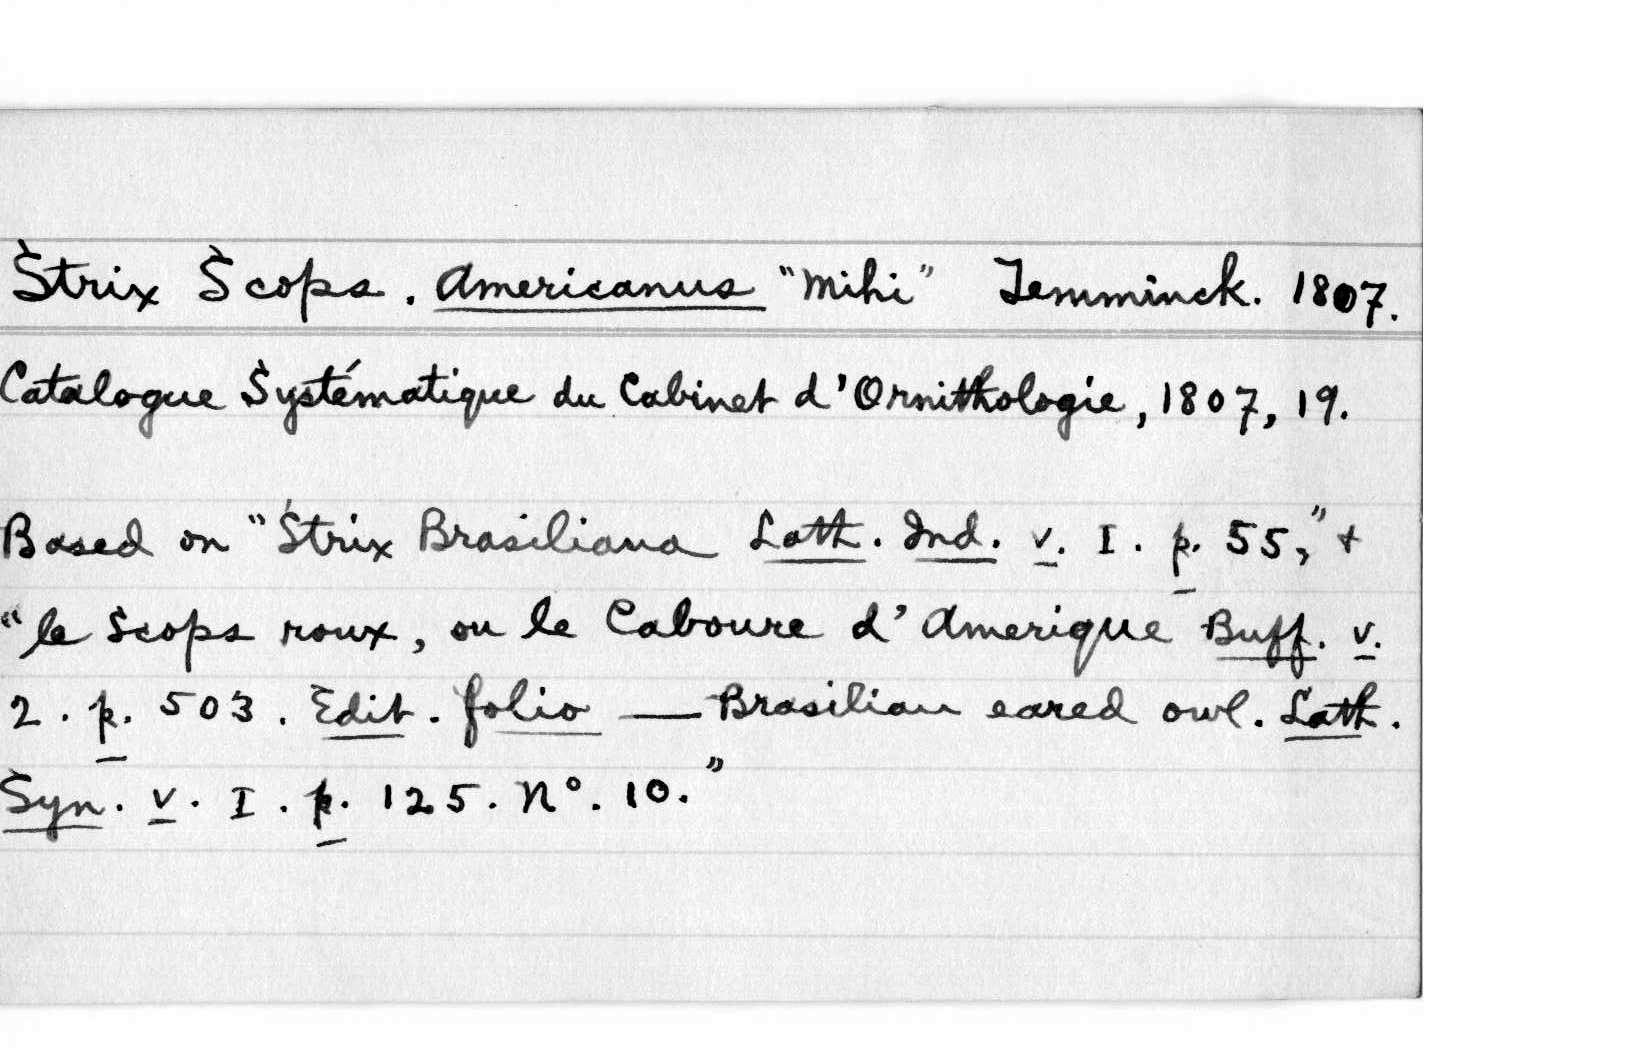 Strix Scops. Americanus "Mihi" Temminck. 1807.
Catalogue Systématique du Cabinet d'Ornithologie, 1807, 19.
Based on "Strix Brasiliana Lath. Ind. v. I. p. 55," +
"le Scops roux, ou le Caboure d'Amerique Buff. v.
2. p. 503. Edit. folio — Brasilian eared owl. Lath.
Syn. v. I. p. 125. No. 10."